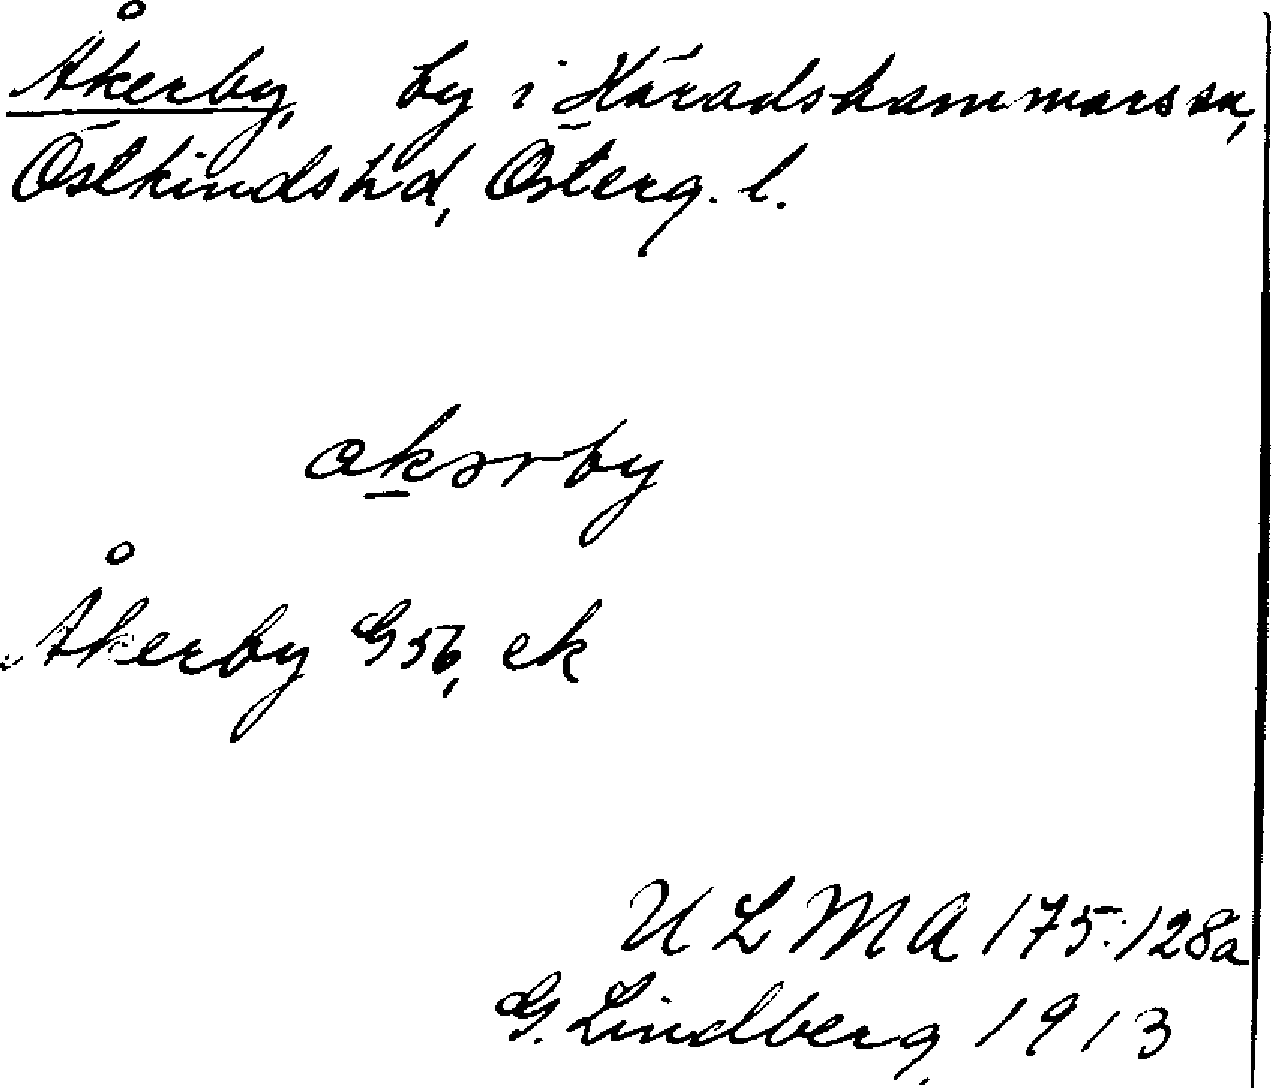 Åkerby, by i Häradshammars sn,
Östkinds hd, Österg. l.
akərby
Åkerby G56, ek
ULMA 175:128a
G. Lindberg 1913